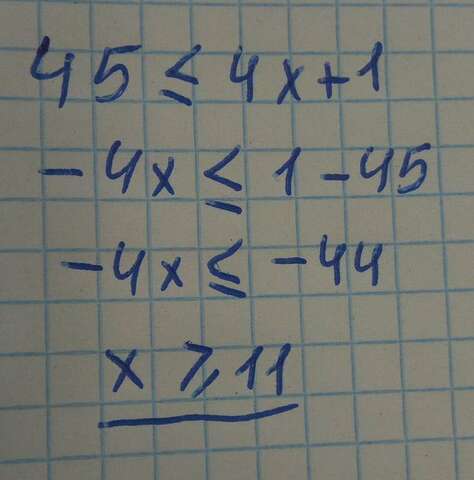 45 ≤ 4x+1
-4x ≤ 1-45
-4x ≤ -44
x ⩾ 11